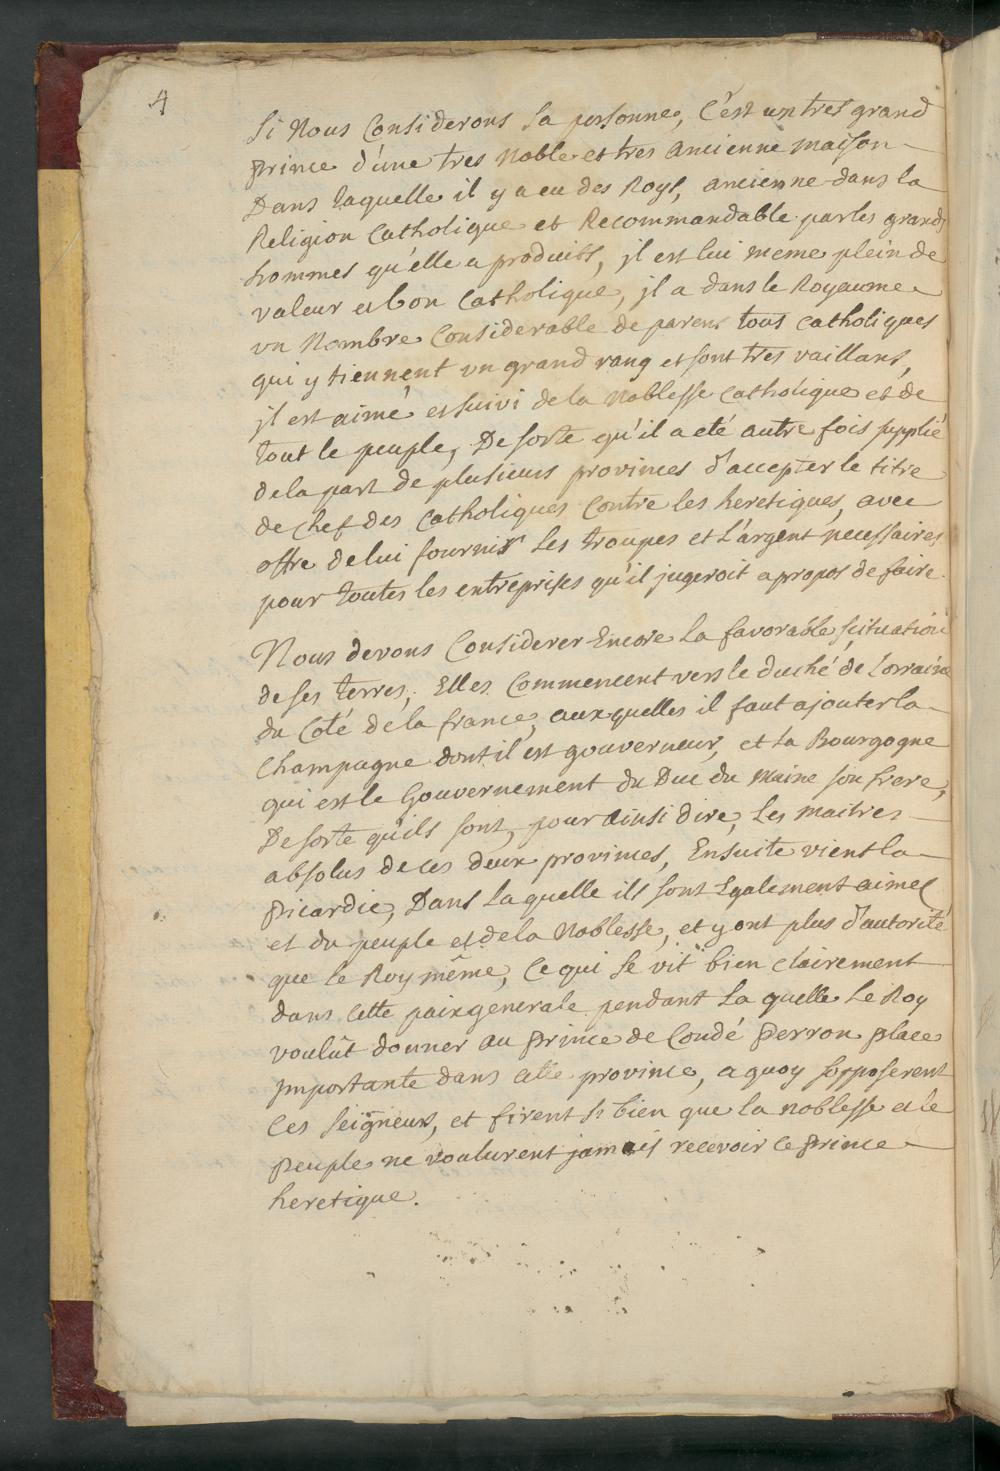 4
Si Nous Considerons sa personne, C'est un tres grand
prince d'une tres Noble et tres ancienne maison
Dans laquelle il y a eu des Roys, ancienne dans la
Religion Catholique et Recommandable par les grands
hommes qu'elle a produits, jl est lui meme plein de
valeur et bon Catholique, jl a dans le Royaume
vn Nombre Considerable de parens tous catholiques
qui y tiennent vn grand rang et sont tres vaillans,
jl est aimé et suivi de la Noblesse Catholique et de
tout le peuple, De sorte qu'il a eté autre fois supplié
de la part de plusieurs provinces d'accepter le titre
de Chef des Catholiques Contre les heretiques, avec
offre de lui fournir les troupes et L'argent necessaires
pour toutes les entreprises qu'il jugeroit apropos de faire.
Nous devons Considerer Encore la favorable scituation
de ses terres, Elles Commencent vers le duché de Lorraine
du Coté de la france, aux quelles il faut ajouter la
Champagne dont il est gouverneur, et la Bourgogne
qui est le Gouvernement du Duc du Maine son frere,
De sorte qu'ils sont, pour ainsi dire, les maitres
absolus de ces deux provinces, Ensuite vient la
Picardie, Dans laquelle ils sont Egalement aimes
et du peuple et de la Noblesse, et y ont plus d'autorité
que le Roy même, Ce qui se vit bien clairement
dans Cette paix generale pendant la quelle Le Roy
voulût donner au Prince de Condé Perron place
jmportante dans cette province, a quoy s'opposerent
Ces Seigneurs, et firent si bien que la noblesse et le
peuple ne voulurent jamais recevoir ce Prince
heretique.